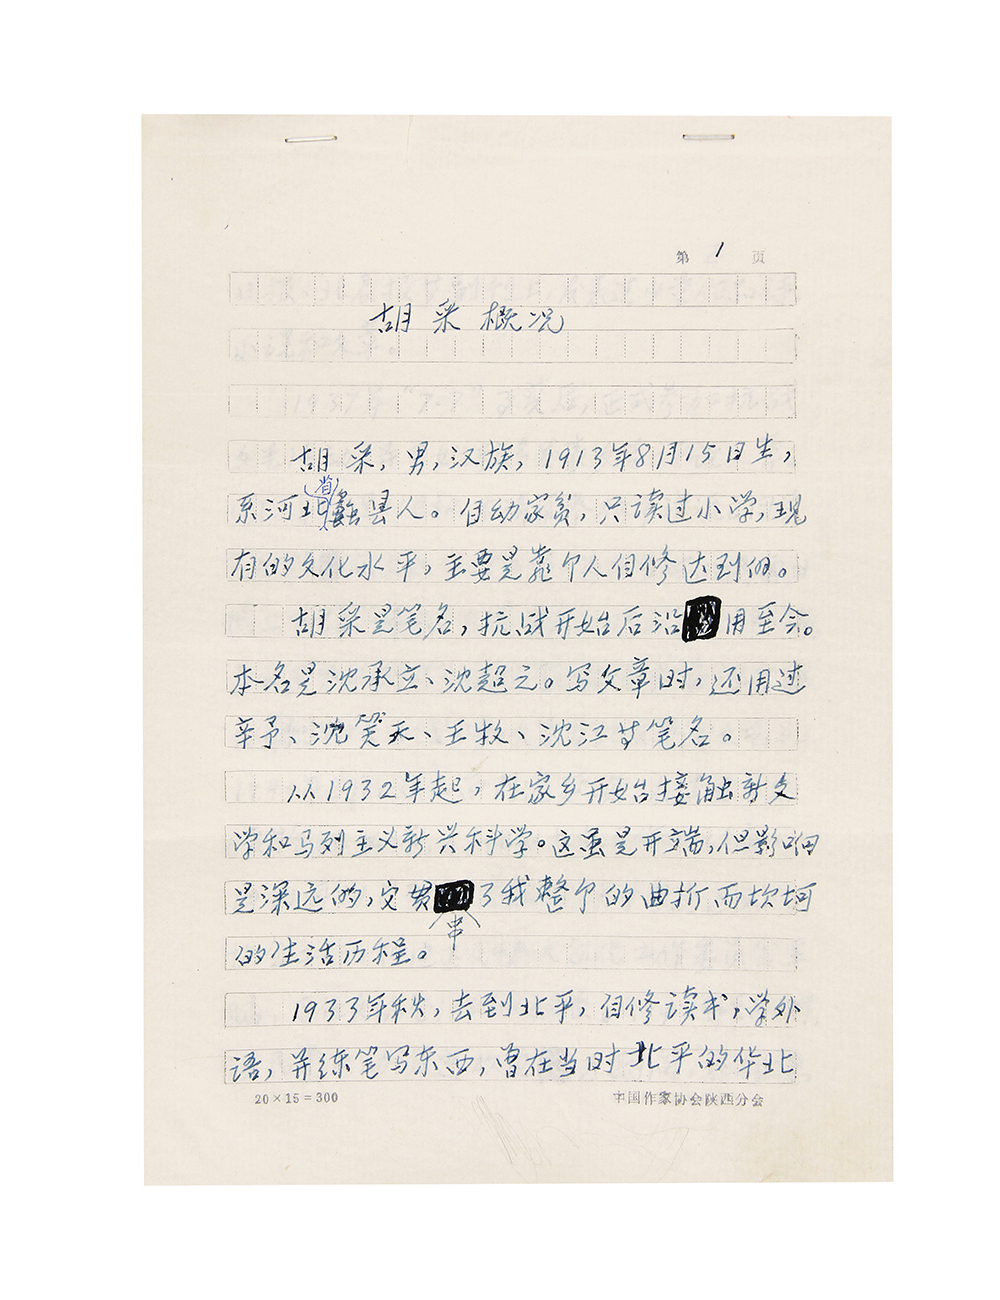 第1页
胡采概况
胡采,男,汉族,1913年8月15日生,
系河北省蠡县人。自幼家贫,只读过小学,现
有的文化水平,主要是靠个人自修达到的。
胡采是笔名,抗战开始后沿用至今。
本名是沈承立、沈超元。写文章时,还用过
辛予、沈笑天、王牧、沈江等笔名。
从1932年起,在家乡开始接触新文
学和马列主义新兴科学。这虽是开端,但影响
是深远的,它贯串了我整个的曲折而坎坷
的生活历程。
1933年秋,去到北平,自修读书,学外
语,并练笔写东西,曾在当时北平的华北
20×15=300 中国作家协会陕西分会